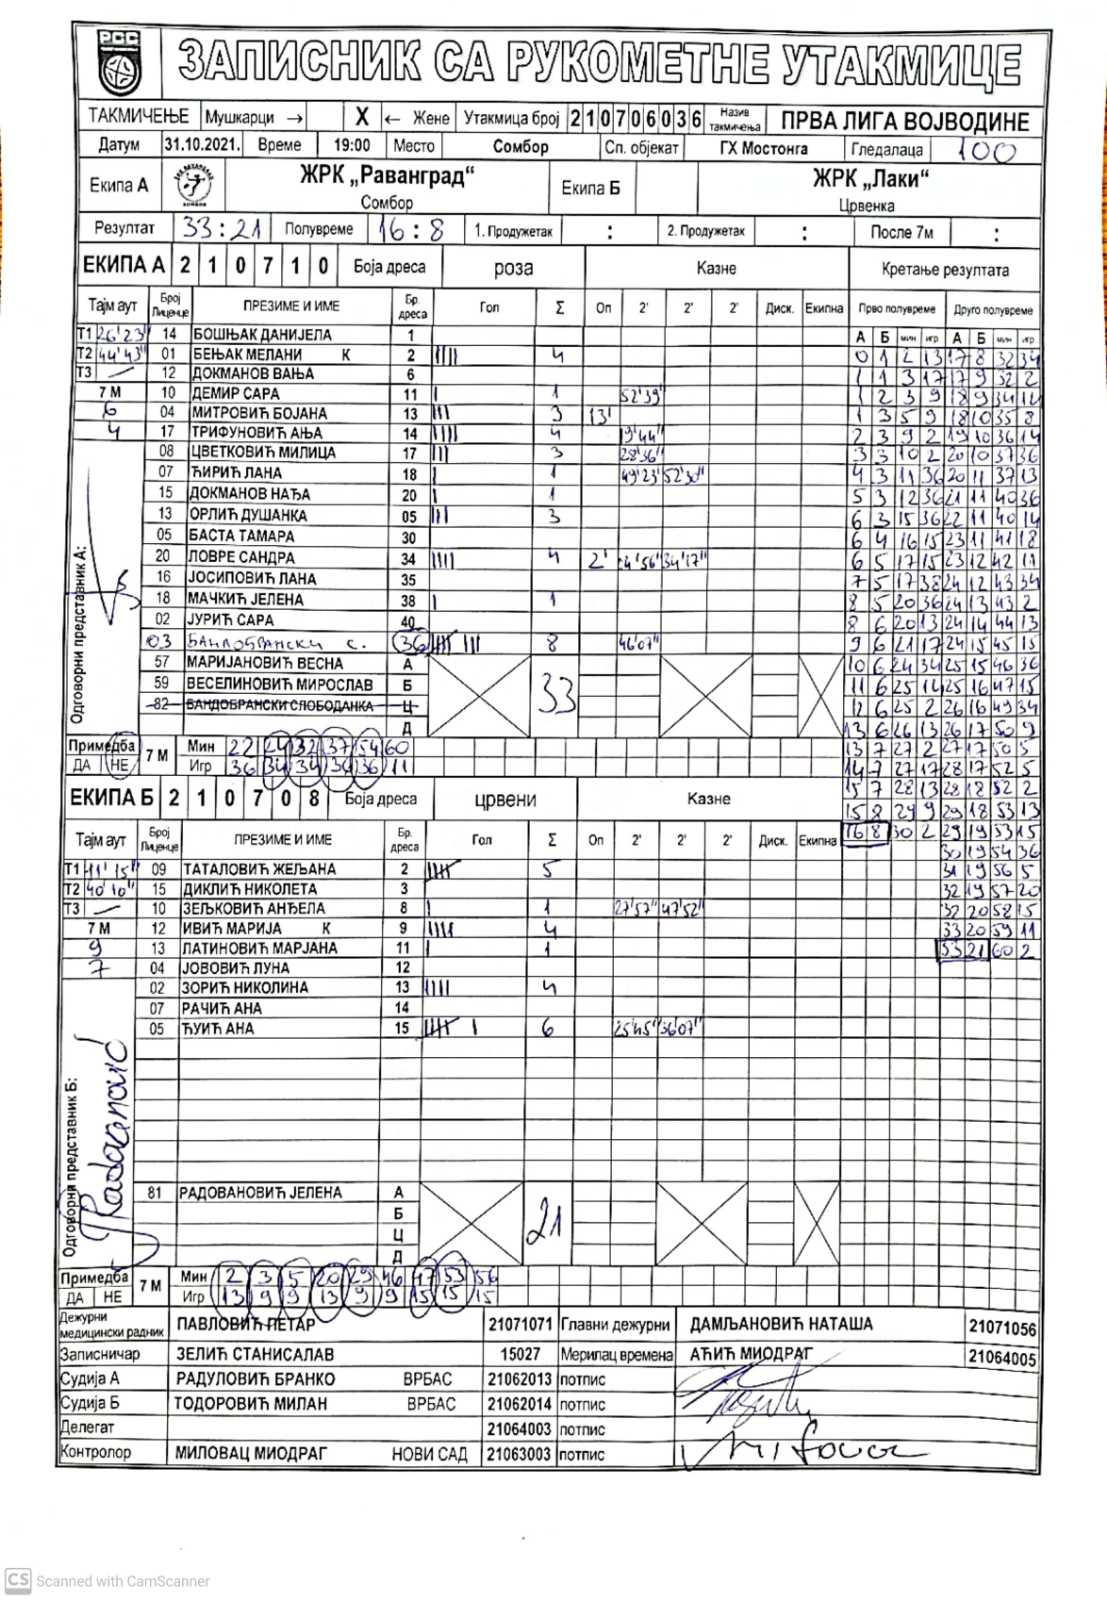 РСС
ЗАПИСНИК СА РУКОМЕТНЕ УТАКМИЦЕ
ТАКМИЧЕЊЕ Мушкарци → X ← Жене Утакмица број 210706036 Назив такмичења ПРВА ЛИГА ВОЈВОДИНЕ
Датум 31.10.2021. Време 19:00 Место Сомбор Сп. објекат ГХ Мостонга Гледалаца 100
Екипа А ЖРК „Раванград“ Сомбор Екипа Б ЖРК „Лаки“ Црвенка
Резултат 33:21 Полувреме 16:8 1. Продужетак : 2. Продужетак : После 7м :
ЕКИПА А 210710 Боја дреса роза Казне Кретање резултата
Тајм аут Број Лиценце ПРЕЗИМЕ И ИМЕ Бр. дреса Гол Σ Оп 2' 2' 2' Диск. Екипна Прво полувреме Друго полувреме
А Б мин игр А Б мин игр
Т1 26'23" 14 БОШЊАК ДАНИЈЕЛА 1
Т2 44'43" 01 БЕЊАК МЕЛАНИ К 2 |||| 4 0 1 2 13 17 8 32 34
Т3 — 12 ДОКМАНОВ ВАЊА 6 1 1 3 17 17 9 32 2
7 М 10 ДЕМИР САРА 11 | 1 52'39" 1 2 3 9 18 9 34 14
6 04 МИТРОВИЋ БОЈАНА 13 ||| 3 13' 1 3 5 9 18 10 35 8
4 17 ТРИФУНОВИЋ АЊА 14 |||| 4 9'44" 2 3 9 2 19 10 36 14
08 ЦВЕТКОВИЋ МИЛИЦА 17 ||| 3 28'36" 3 3 10 2 20 10 37 36
07 ЋИРИЋ ЛАНА 18 | 1 49'23" 52'30" 4 3 11 36 20 11 37 13
15 ДОКМАНОВ НАЂА 20 | 1 5 3 12 36 21 11 40 36
13 ОРЛИЋ ДУШАНКА 05 ||| 3 6 3 15 36 22 11 40 14
05 БАСТА ТАМАРА 30 6 4 16 15 23 11 41 18
20 ЛОВРЕ САНДРА 34 |||| 4 2' 34'17" 6 5 17 15 23 12 42 11
16 ЈОСИПОВИЋ ЛАНА 35 7 5 17 38 24 12 43 34
18 МАЧКИЋ ЈЕЛЕНА 38 | 1 8 5 20 36 24 13 43 2
02 ЈУРИЋ САРА 40 8 6 20 13 24 14 44 13
03 БАНДОБРАНСКИ С. 36 |||| ||| 8 46'07" 9 6 21 17 24 15 45 15
57 МАРИЈАНОВИЋ ВЕСНА А 10 6 24 34 25 15 46 36
59 ВЕСЕЛИНОВИЋ МИРОСЛАВ Б 33 11 6 25 14 25 16 47 15
82 БАНДОБРАНСКИ СЛОБОДАНКА Ц 12 6 25 2 26 16 49 34
Д 13 6 26 13 26 17 50 9
Одговорни представник А:
Примедба 7 М Мин 22 24 32 37 54 60 13 7 27 2 27 17 50 5
ДА НЕ Игр 36 34 34 34 36 11 14 7 27 17 28 17 52 5
ЕКИПА Б 210708 Боја дреса црвени Казне 15 7 28 13 28 18 52 2
15 8 29 9 29 18 53 13
Тајм аут Број Лиценце ПРЕЗИМЕ И ИМЕ Бр. дреса Гол Σ Оп 2' 2' 2' Диск. Екипна 16 8 30 2 29 19 53 15
30 19 54 36
Т1 11'15" 09 ТАТАЛОВИЋ ЖЕЉАНА 2 |||| 5 31 19 56 5
Т2 40'10" 15 ДИКЛИЋ НИКОЛЕТА 3 32 19 57 20
Т3 — 10 ЗЕЉКОВИЋ АНЂЕЛА 8 | 1 27'57" 47'52" 32 20 58 15
7 М 12 ИВИЋ МАРИЈА К 9 |||| 4 33 20 59 11
9 13 ЛАТИНОВИЋ МАРЈАНА 11 | 1 33 21 60 2
7 04 ЈОВОВИЋ ЛУНА 12
02 ЗОРИЋ НИКОЛИНА 13 |||| 4
07 РАЧИЋ АНА 14
05 ЋУИЋ АНА 15 |||| | 6 25'45" 36'07"
Одговорни представник Б:
81 РАДОВАНОВИЋ ЈЕЛЕНА А
Б 21
Ц
Д
Примедба 7 М Мин 2 3 5 20 29 46 47 53 56
ДА НЕ Игр 13 9 9 13 9 9 15 15 15
Дежурни медицински радник ПАВЛОВИЋ ПЕТАР 21071071 Главни дежурни ДАМЉАНОВИЋ НАТАША 21071056
Записничар ЗЕЛИЋ СТАНИСАЛАВ 15027 Мерилац времена АЋИЋ МИОДРАГ 21064005
Судија А РАДУЛОВИЋ БРАНКО ВРБАС 21062013 потпис
Судија Б ТОДОРОВИЋ МИЛАН ВРБАС 21062014 потпис
Делегат 21064003 потпис
Контролор МИЛОВАЦ МИОДРАГ НОВИ САД 21063003 потпис
CS Scanned with CamScanner